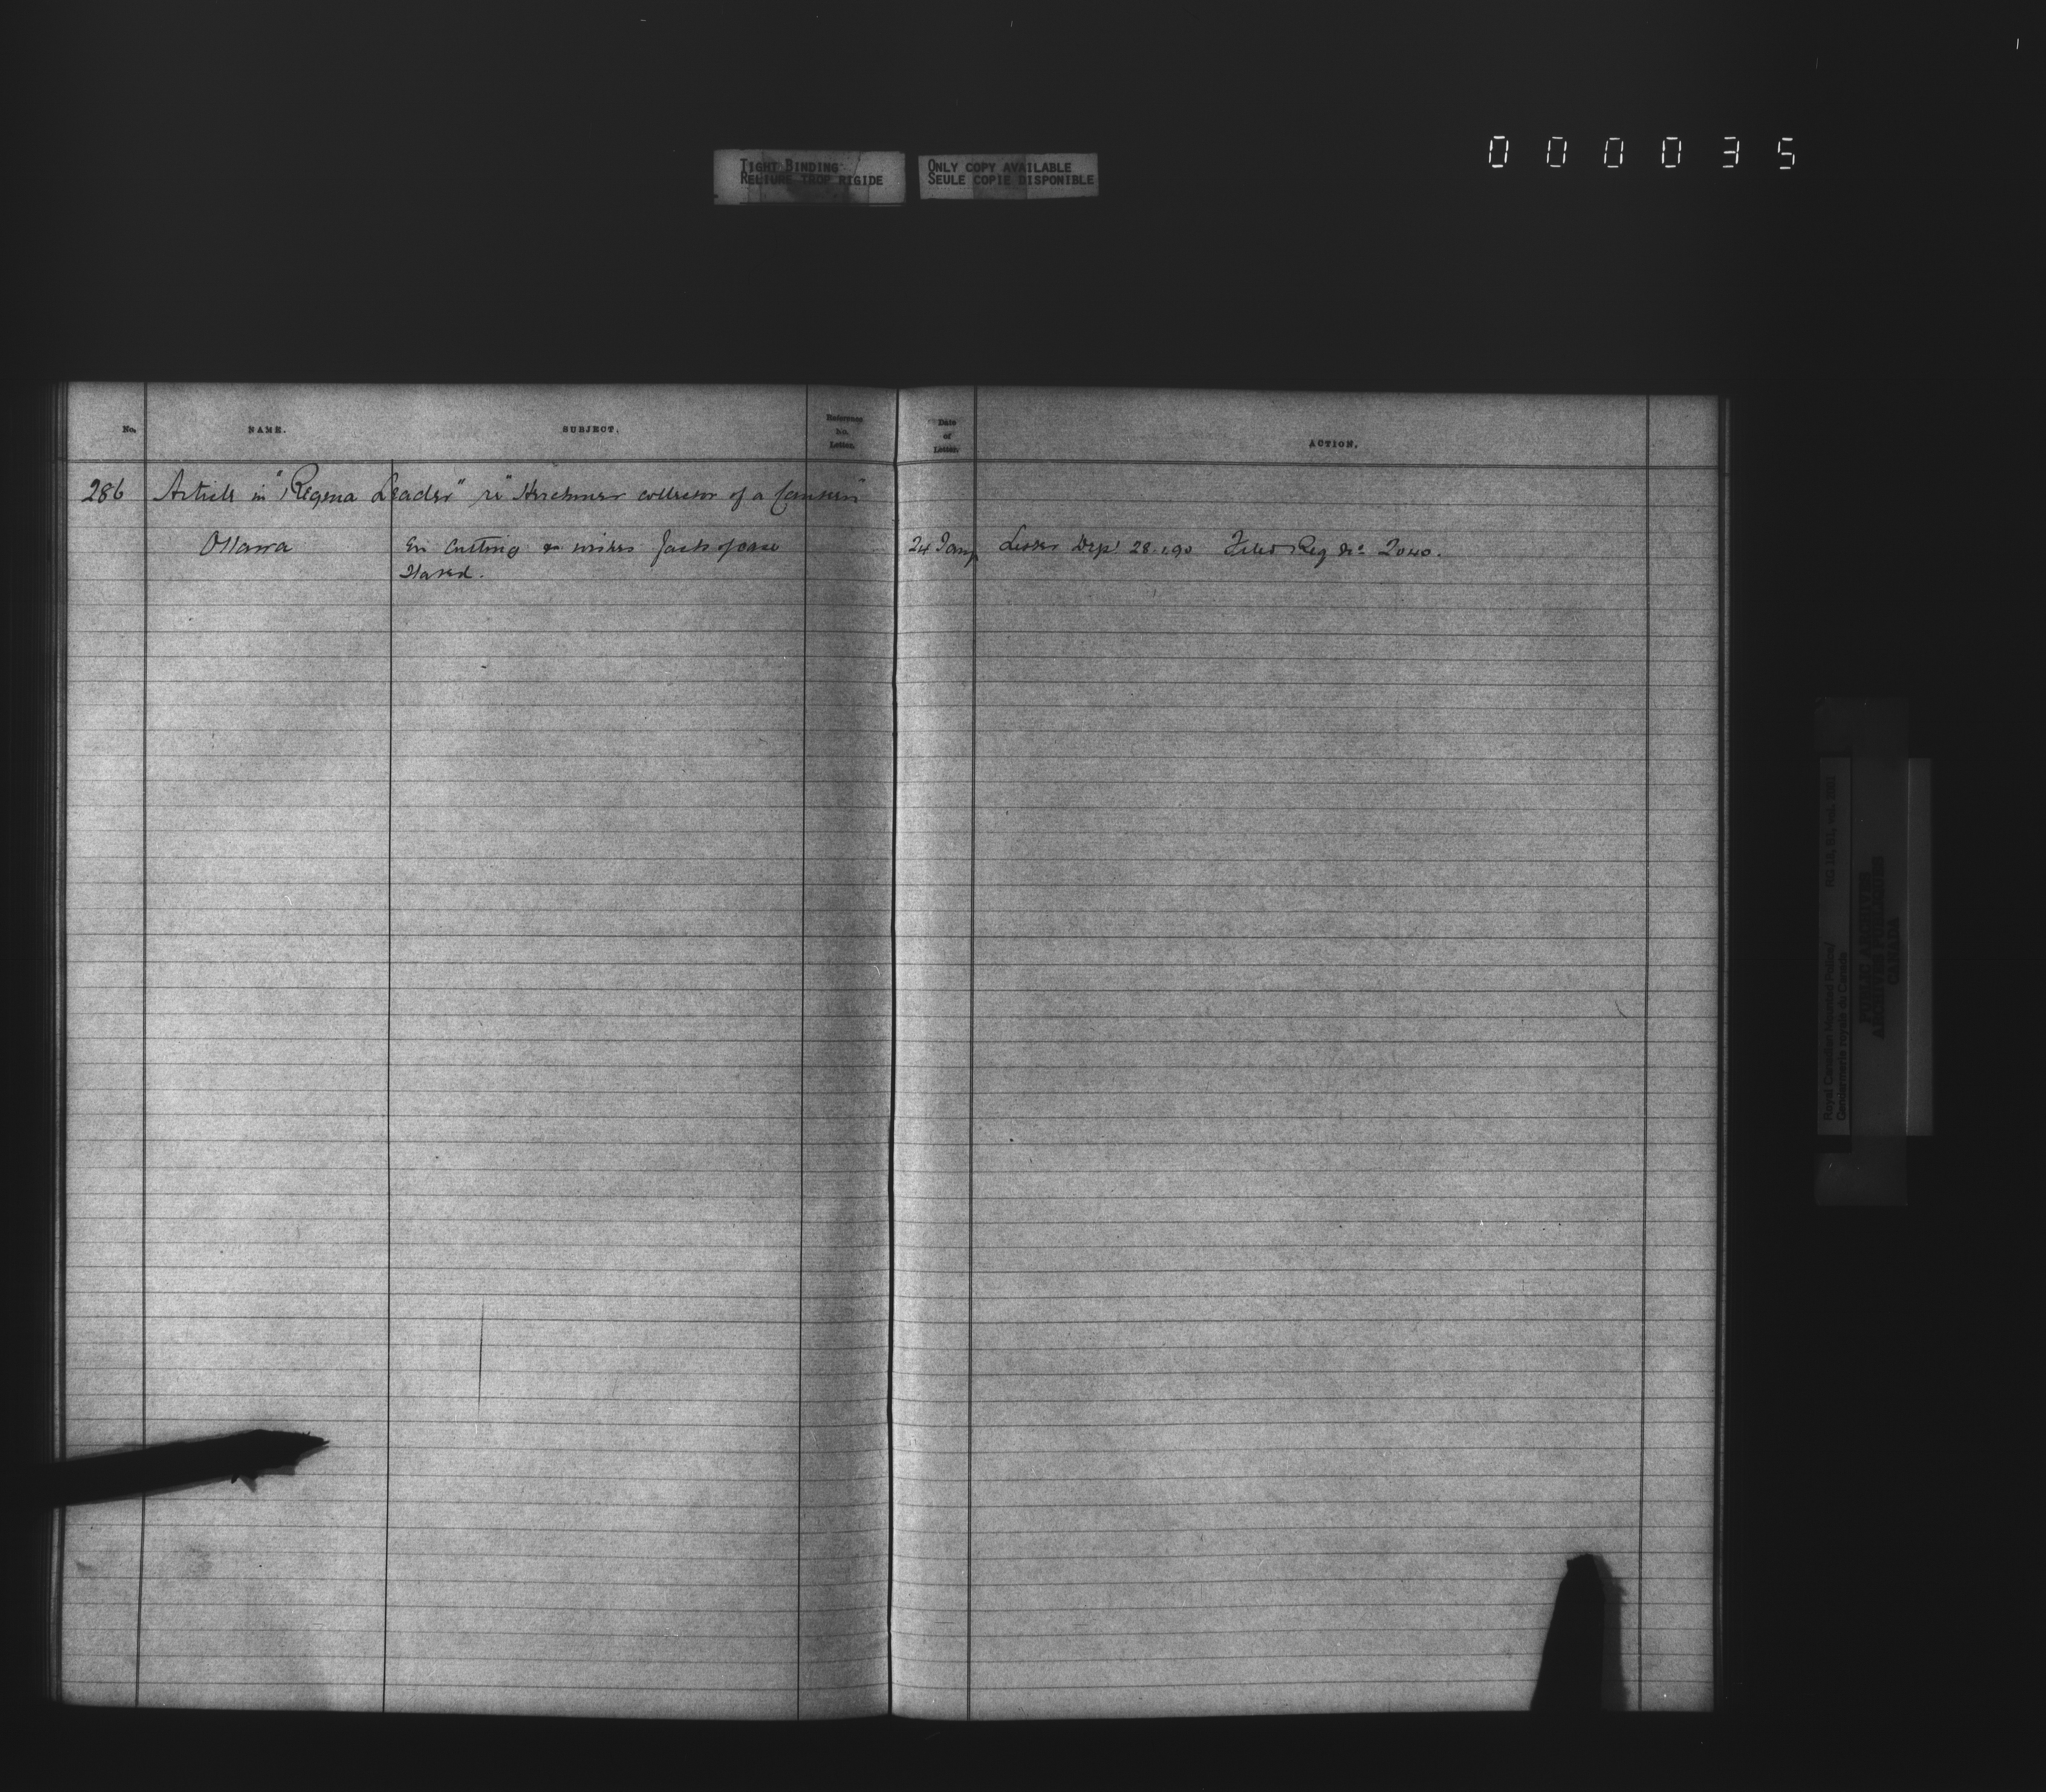 TIGHT BINDING
RELIURE TROP RIGIDE
ONLY COPY AVAILABLE
SEULE COPIE DISPONIBLE
000035
No.
NAME.
SUBJECT.
Reference
No.
Letter.
Date
of
Letter.
ACTION.
286 Article in "Regina Leader" re "Herchmer collector of a
Ottawa
En cutting & wishes facts of case
stated.
24 Jany
Letter Dept 28.1.90 Filed Reg No 2040.
Royal Canadian Mounted Police/
Gendarmerie royale du Canada
RG 18, B1, vol.
PUBLIC ARCHIVES
ARCHIVES PUBLIQUES
CANADA